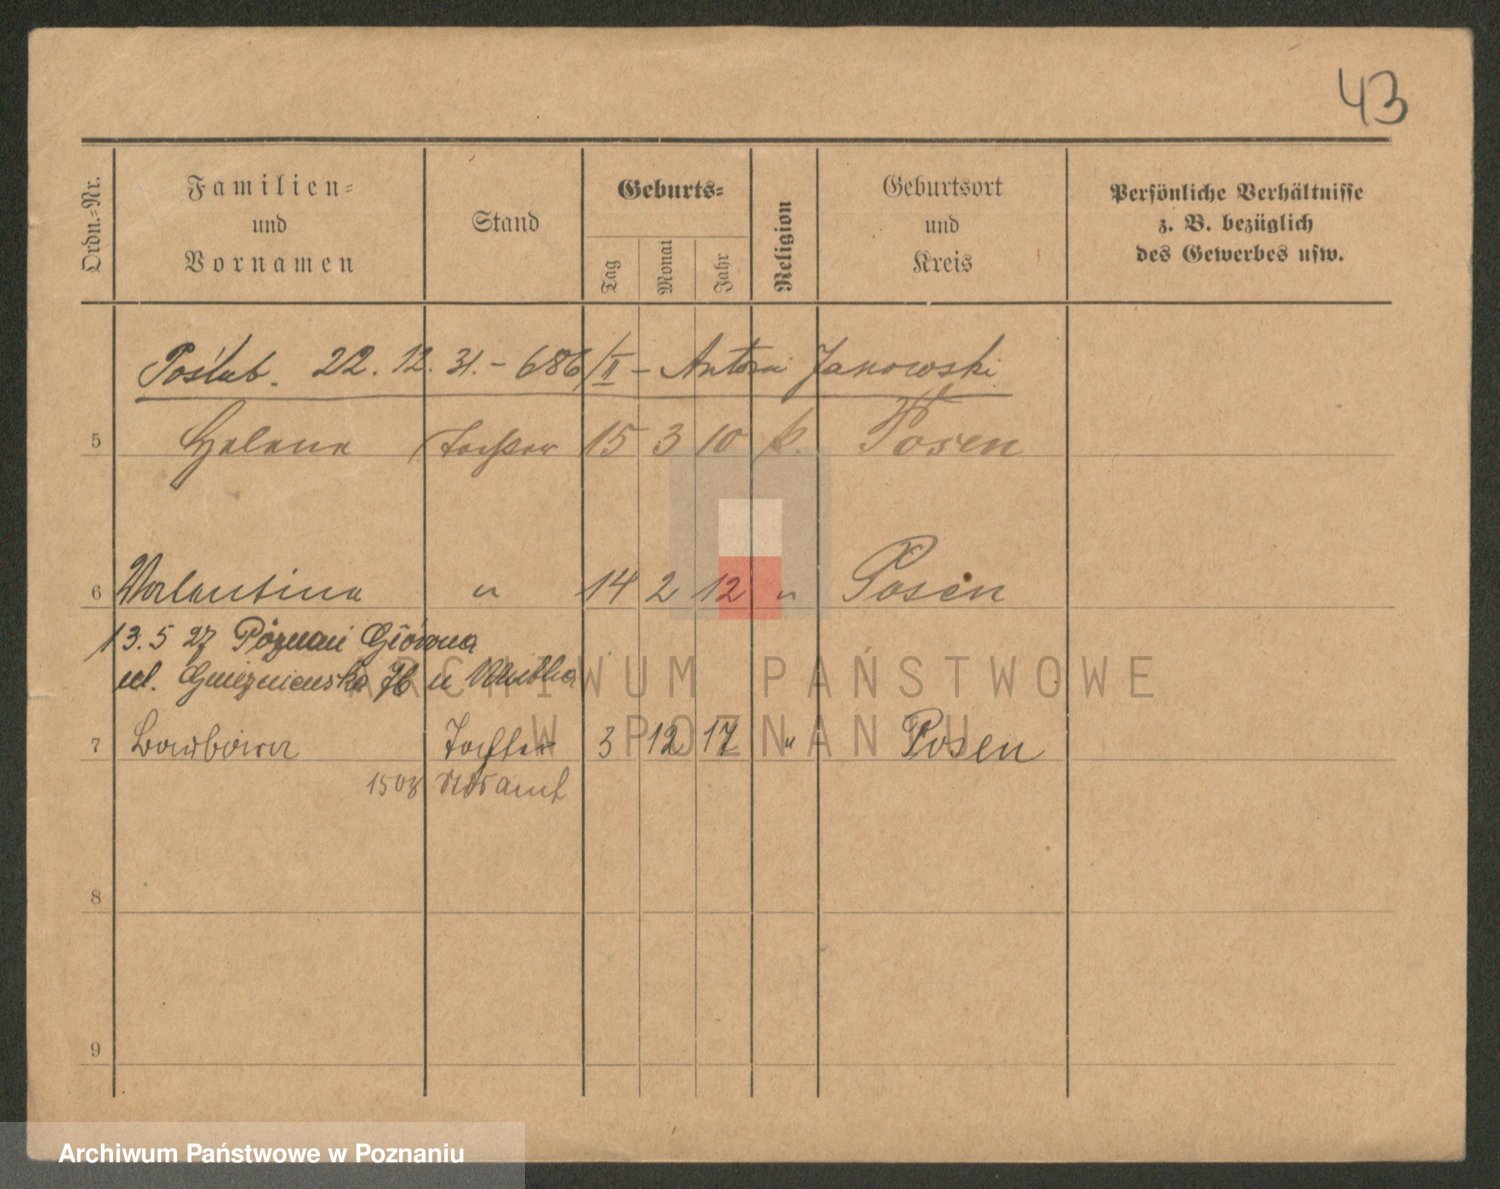 43
Ordn.-Nr.
Familien-
und
Vornamen
Stand
Geburts-
Tag
Monat
Jahr
Religion
Geburtsort
und
Kreis
Persönliche Verhältnisse
z. B. bezüglich
des Gewerbes usw.
Poślub. 22.12.31. - 686/II - Antoni Janowski
5 Helena Tochter 15 3 10 k. Posen
6 Valentina " 14 2 12 " Posen
13.5 27 Poznań Główna
ul. Gnieźnieńska 76 u
7 Barbara Tochter 3 12 17 " Posen
1508
8
9
ARCHIWUM PAŃSTWOWE
W POZNANIU
Archiwum Państwowe w Poznaniu